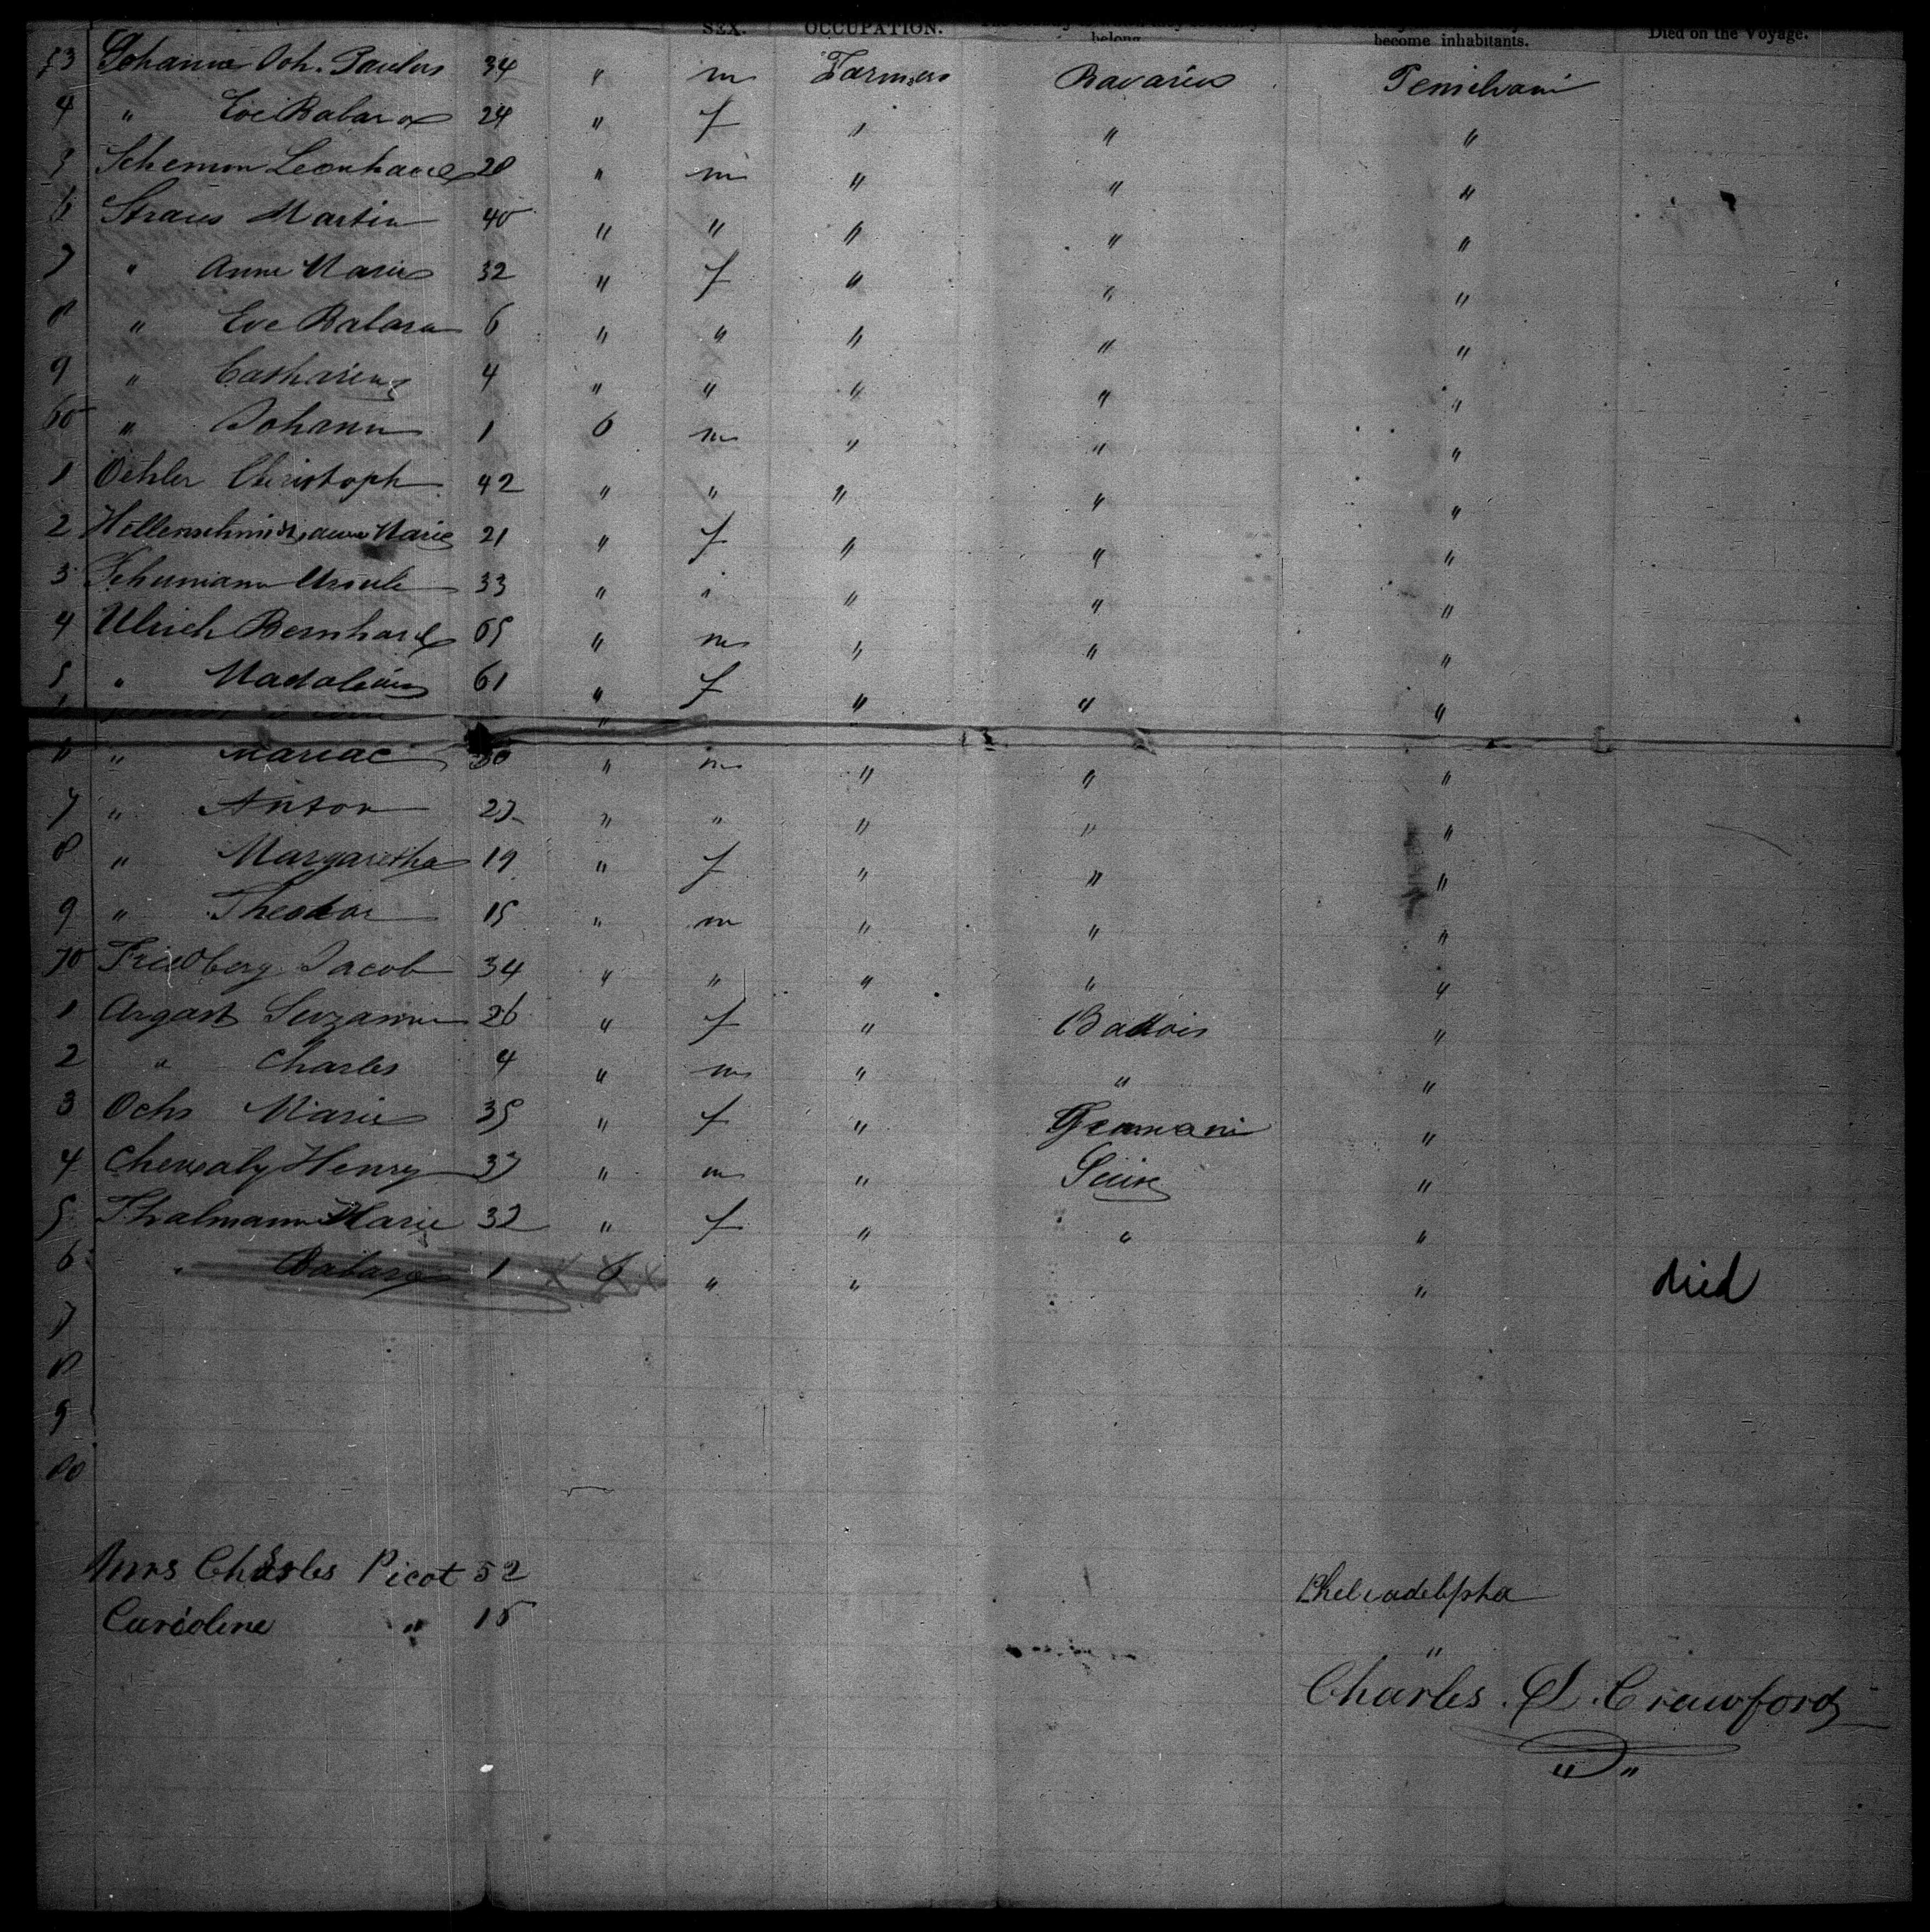 SEX. OCCUPATION. belong become inhabitants. Died on the Voyage.
53 Joh. Paulus 34 " m Farmers Bavaria Pensilvani
4 " Eve Babara 24 " f " " "
5 Leonhard 28 " m " " "
6 Straus Martin 40 " " " " "
7 " Anne Marie 32 " f " " "
8 " Eve Balara 6 " " " " "
9 " Catharina 4 " " " " "
60 " Johann 1 6 m " " "
1 Oehler Christoph 42 " " " " "
2 Hellenschmidt, anne Marie 21 " f " " "
3 Schumann Ursule 33 " " " " "
4 Ulrich Bernhard 65 " m " " "
5 " Madaleina 61 " f " " "
6 " 30 " m " " "
7 " Anton 27 " " " " "
8 " Margaretha 19 " f " " "
9 " Theodor 15 " m " " "
70 Friedberg Jacob 34 " " " " "
1 Argast Suzanne 26 " f " Badois "
2 " Charles 4 " m " " "
3 Ochs Marie 35 " f " Germani "
4 Henry 37 " m " Suise "
5 Thalmann Marie 32 " f " " "
6 " Babara 1 6 " " " died
7
8
9
80
Mrs Charles Picot 52 Pheliadelpha
Caroline " 15 "
Charles D. Crawford
" "